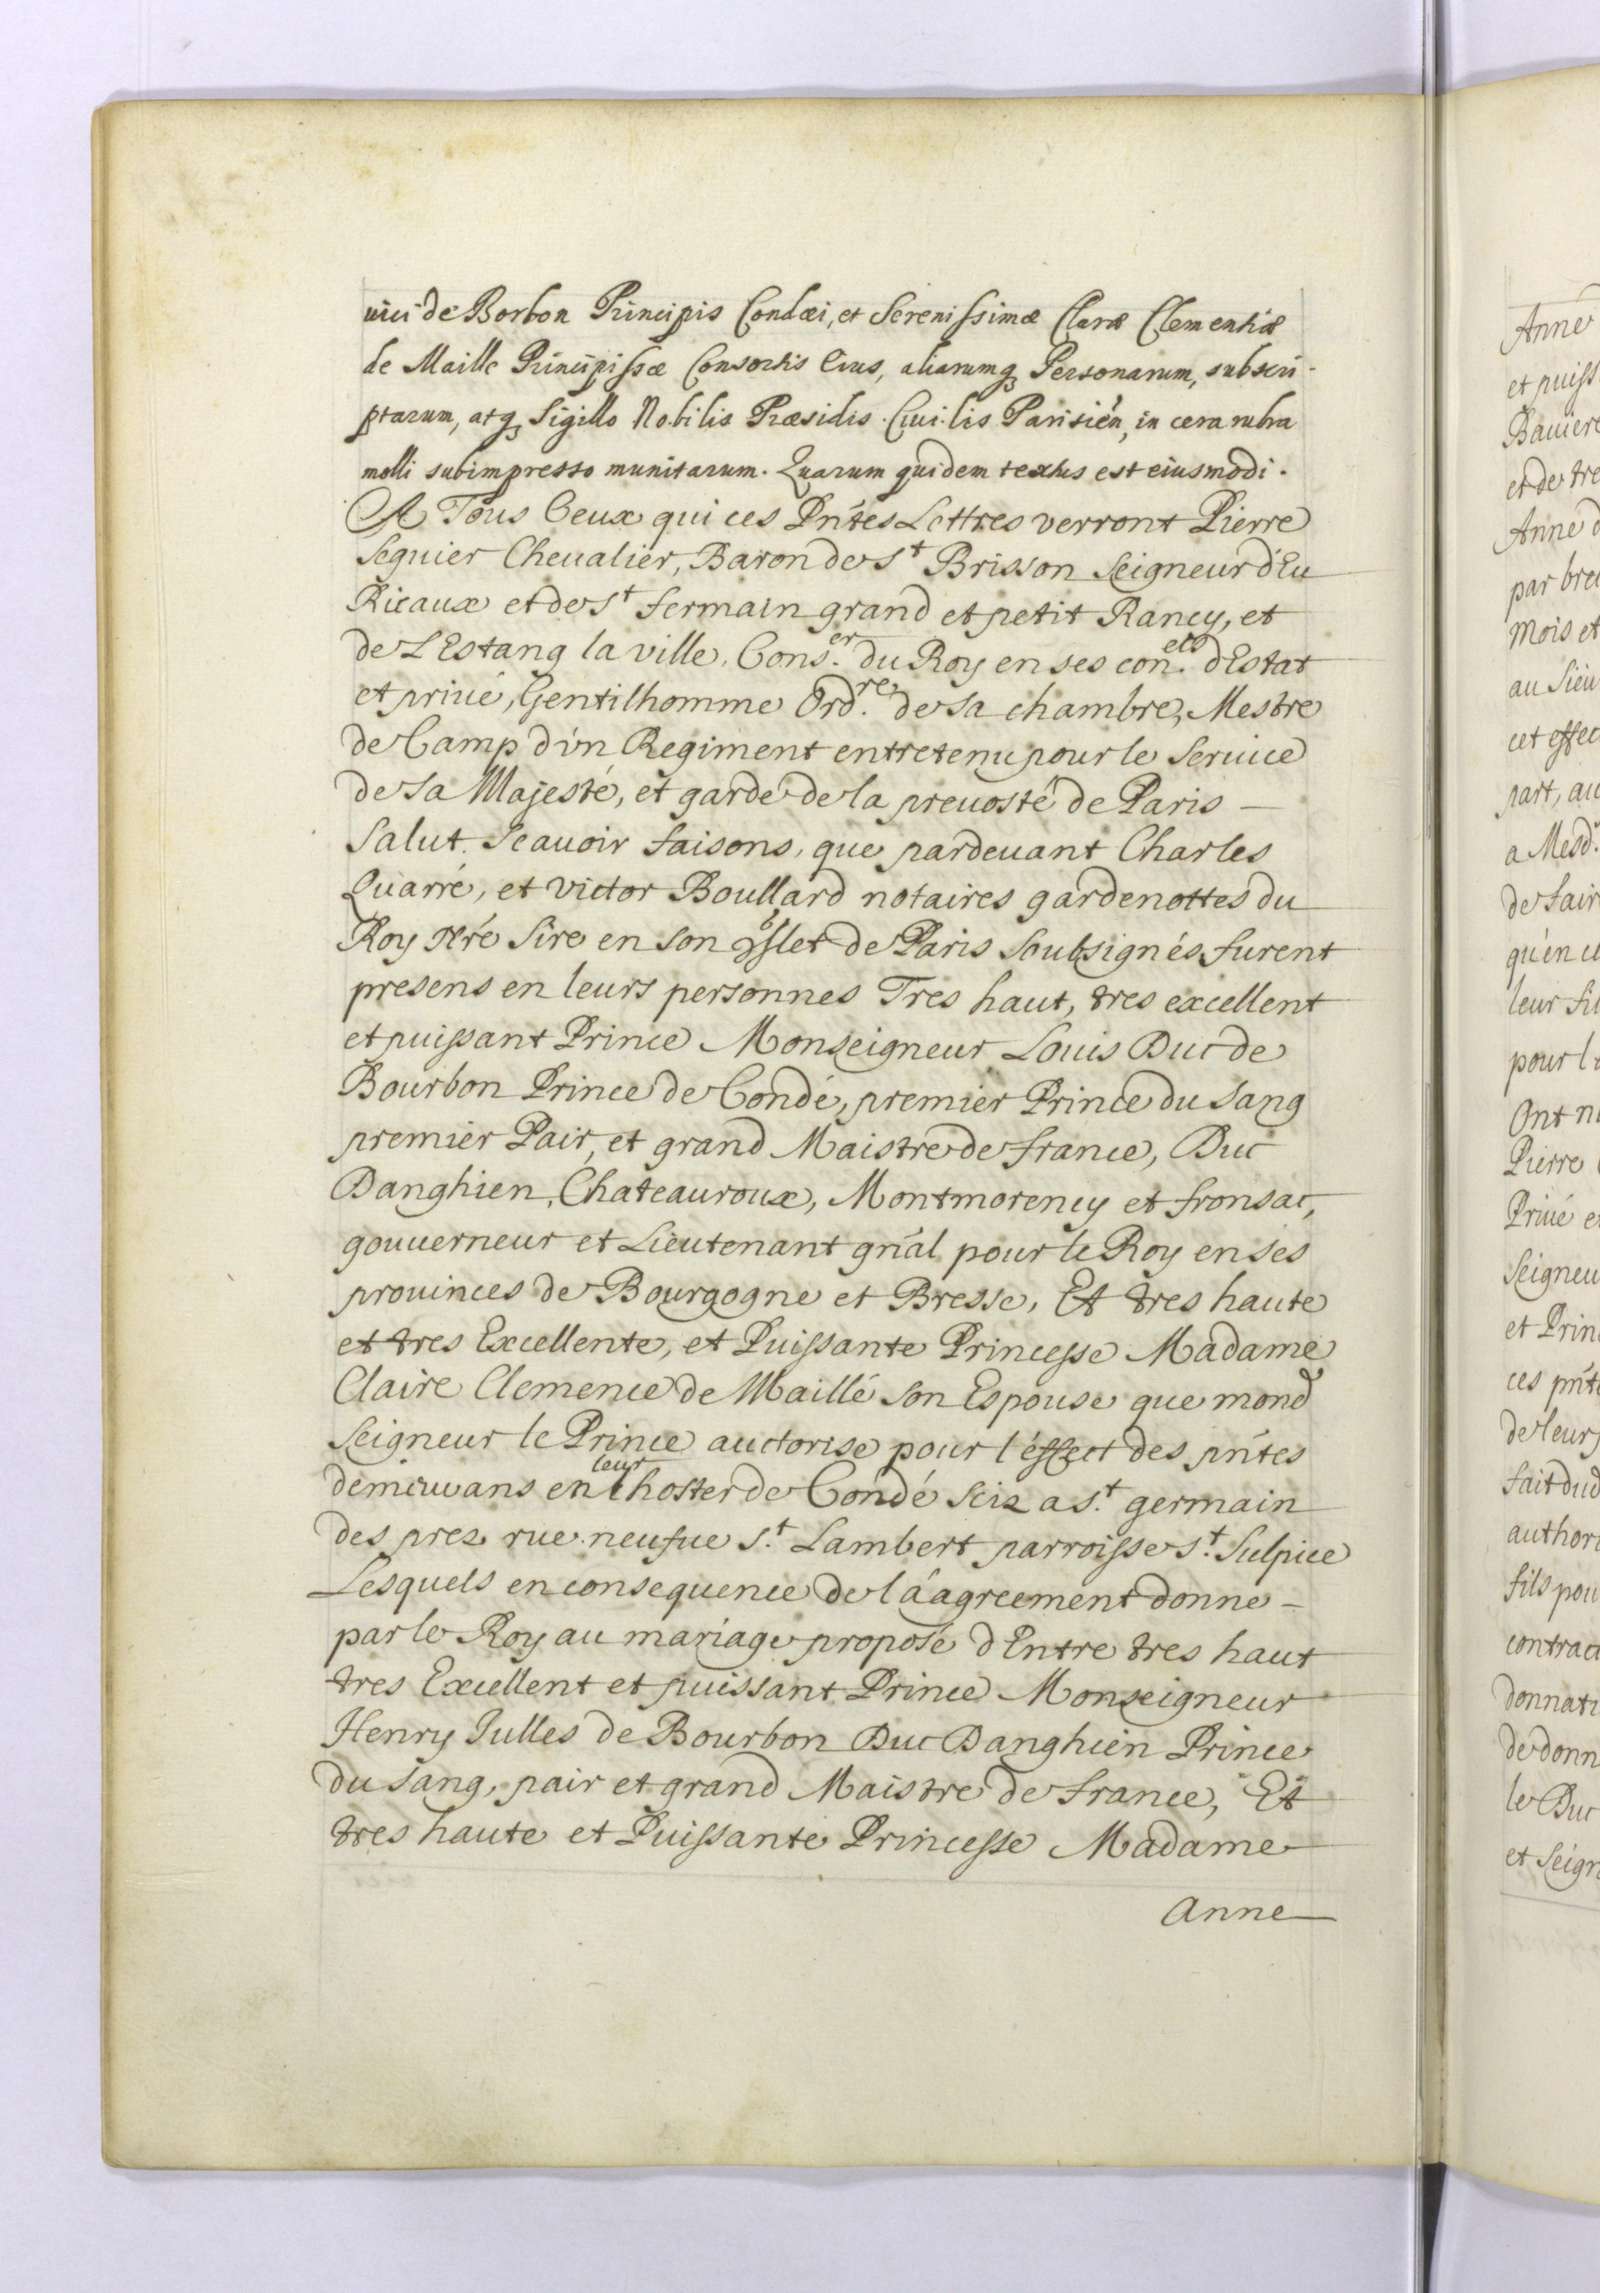 uici de Borbon Principis Condæi, et Serenissimæ Claræ Clementiæ
de Maille Principissæ Consortis Eius, aliarumq3 Personarum, subscri-
ptarum, atq3 Sigillo Nobilis Præsidis Ciuilis Parisien, in cera rubra
molli subimpresso munitarum. Quarum quidem textus est eiusmodi.
A Tous Ceux qui ces Pñtes Lettres verront Pierre
Seguier Cheualier, Baron de St Brisson Seigneur d'Eu
Ricaux et de St fermain grand et petit Rancy, et
de L'Estang la ville, Cons.er du Roy en ses con.els d'Estat
et priué, Gentilhomme Ord.re de sa chambre, Mestre
de Camp d'vn Regiment entretenu pour le Seruice
de Sa Majesté, et garde de la preuosté de Paris —
Salut. Scauoir faisons, que pardeuant Charles
Quarré, et victor Boullard notaires gardenottes du
Roy nr̃e Sire en son Chlet de Paris Soubsignés furent
presens en leurs personnes Tres haut, tres excellent
et puissant Prince Monseigneur Louis Duc de
Bourbon Prince de Condé, premier Prince du Sang
premier Pair, et grand Maistre de france, Duc
Danghien, Chateauroux, Montmorency et fronsac,
gouuerneur et Lieutenant gñal pour le Roy en ses
prouinces de Bourgogne et Bresse, Et tres haute
et tres Excellente, et Puissante Princesse Madame
Claire Clemence de Maillé son Espouse que mond
Seigneur le Prince auctorise pour l'éffect des pñtes
demeuvans en leur hoster de Condé Seiz a St. germain
des prez rue neufue St. Lambert parroisse St. Sulpice
Lesquels en consequence de l'áagreement donne –
par le Roy au mariage proposé d'Entre tres haut
tres Excellent et puissant Prince Monseigneur
Henry Julles de Bourbon Duc Danghien Prince
du Sang, pair et grand Maistre de france, Et
tres haute et Puissante Princesse Madame
Anne
Anne
et puiss
Bauiere
et de tre
Anne d
par bre
mois et
au Sieu
cet effec
part, au
a Mesd.
de fair
qu'en ce
leur fil
pour l
Ont
Pierre
Priué e
Seigneu
et Prin
ces pñt
de leur
fait dud
author
fils pou
contract
donnati
de donn
le Duc
et Seign